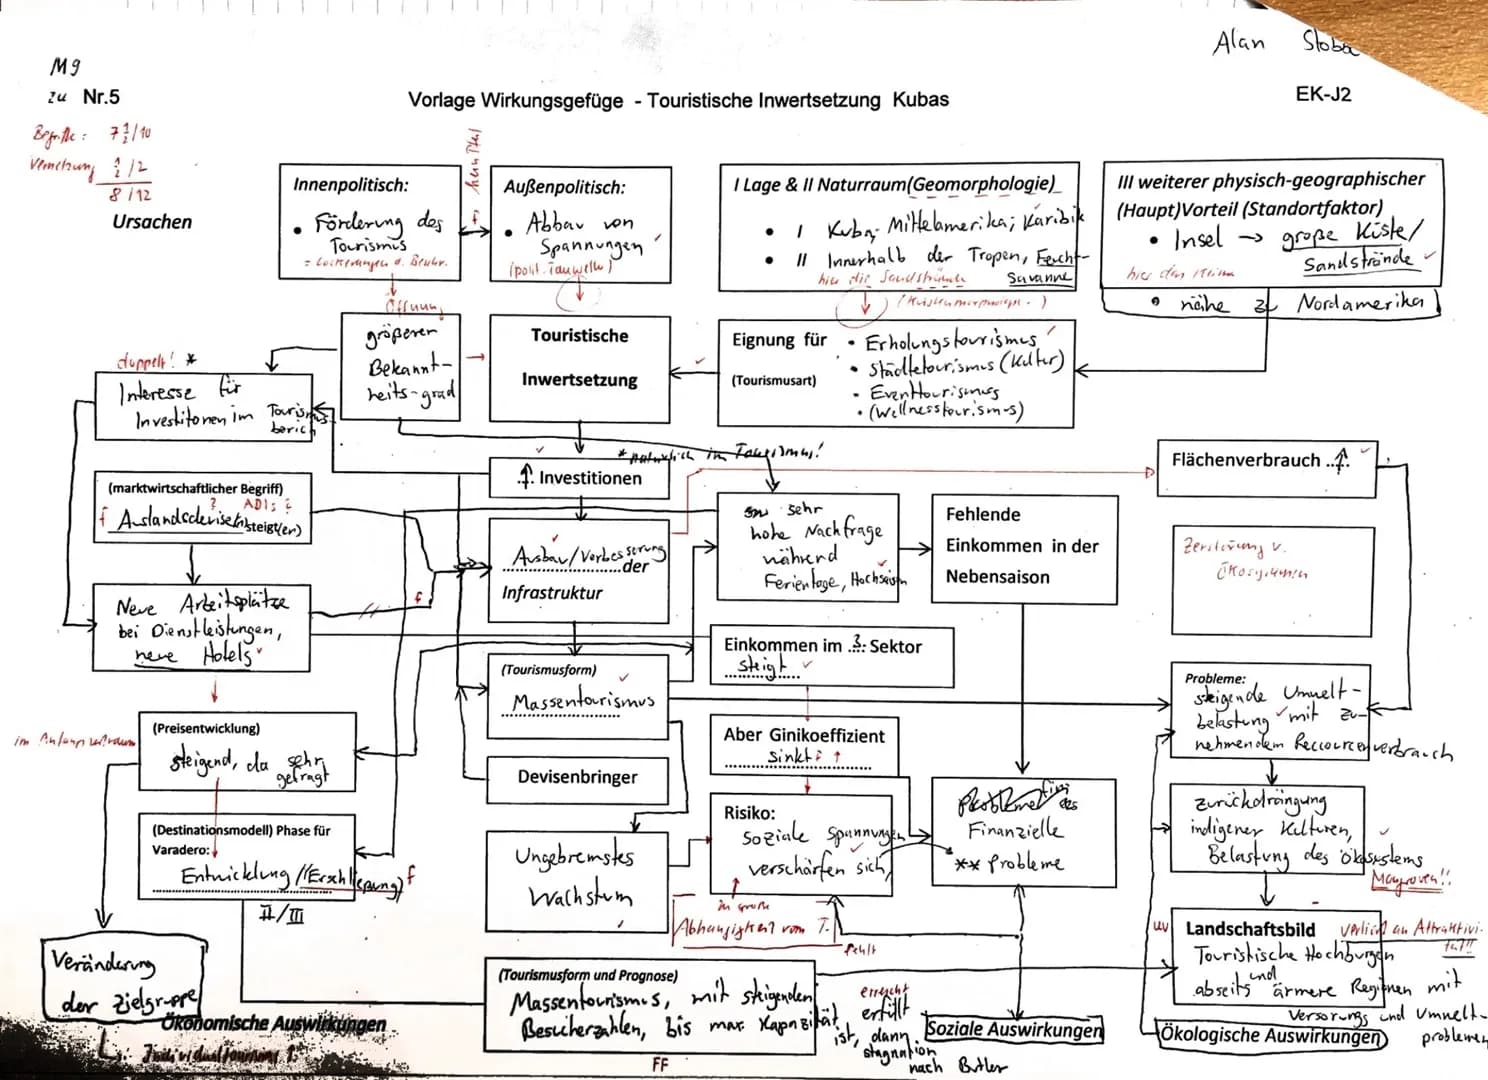 Alan
M9
zu Nr.5
Vorlage Wirkungsgefüge - Touristische Inwertsetzung Kubas
EK-J2
Begriffe: 7 1/2/10
Vernetzung 1/2/2
8/12
Ursachen
Innenpolitisch:
• Förderung des
Tourismus
= Lockerungen d.
Öffnung
kein Pfeil
f
Außenpolitisch:
• Abbau von
Spannungen
(polit. Tauwetter)
I Lage & II Naturraum(Geomorphologie)
• I Kuba; Mittelamerika; Karibik
• II Innerhalb der Tropen, Feucht-
Savanne
hier die Sandstrände
III weiterer physisch-geographischer
(Haupt)Vorteil (Standortfaktor)
• Insel → große Küste/
Sandstrände
hier das Klima
• nähe zu Nordamerika
größerer
Bekannt-
heits-grad
Touristische
Inwertsetzung
Eignung für
(Tourismusart)
• Erholungstourismus
• Städtetourismus (Kultur)
• Eventtourismus
• (Wellnesstourismus)
doppelt! *
Interesse für
Investitonen im Tourismus-
berich
* natürlich im Tourismus!
↑ Investitionen
Flächenverbrauch ..↑.
(marktwirtschaftlicher Begriff)
? ADIs ?
f Auslandsdevise(n) steigt(en)
Ausbau/Verbesserung
der
Infrastruktur
sehr
hohe Nachfrage
während
Ferientage, Hochsaison
Fehlende
Einkommen in der
Nebensaison
Zerstörung v.
Ökosystemen
Neue Arbeitsplätze
bei Dienstleistungen,
neue Hotels
f
(Tourismusform)
Massentourismus
Einkommen im .3. Sektor
steigt
Probleme:
steigende Umwelt-
belastung mit zu-
nehmendem Reccourcenverbrauch
im Anfangszeitraum
(Preisentwicklung)
steigend, da sehr
gefragt
Devisenbringer
Aber Ginikoeffizient
sinkt f ↑
Risiko:
soziale Spannungen
verschärfen sich
Finanzielle
** Probleme
zurückdrängung
indigener Kulturen,
Belastung des ökosystems
Mangroven!!
(Destinationsmodell) Phase für
Varadero:
Entwicklung /(Erschließung) f
II/III
Ungebremstes
Wachstum
zu große
Abhängigkeit vom T.
fehlt
Landschaftsbild
verliert an Attraktivi-
tät!!
Touristische Hochburgen
und
abseits ärmere Regionen mit
Versorungs und Umwelt-
problemen
Veränderung
der Zielgruppe
Individualtourismus ↑
Ökonomische Auswirkungen
(Tourismusform und Prognose)
Massentourismus, mit steigenden
Besucherzahlen, bis max Kapazität
erreicht
erfüllt
ist, dann
stagnation
nach Butler
FF
Soziale Auswirkungen
Ökologische Auswirkungen